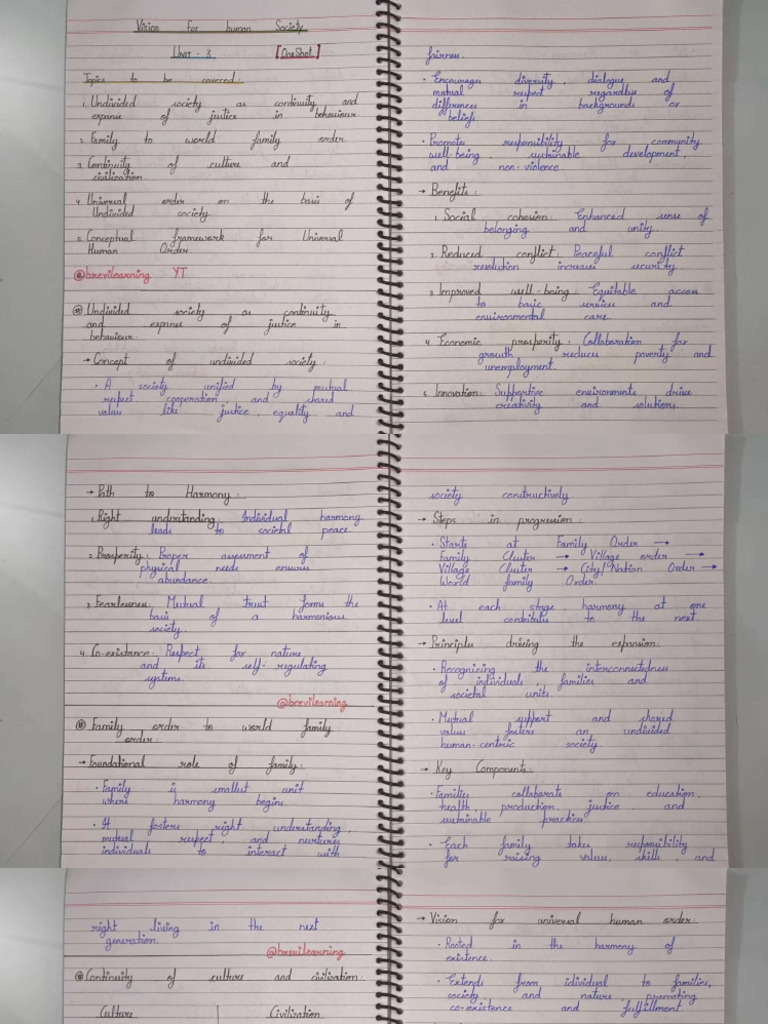 Vision for human Society
Unit - 3 [OneShot]
Topics to be covered:
1. Undivided society as continuity and
expanse of justice in behaviour
2. Family to world family order
3. Continuity of culture and
civilization
4. Universal order on the basis of
Undivided society
5. Conceptual framework for Universal
Human Order
@brevilearning YT
Undivided society as continuity
and expanse of justice in
behaviour
→ Concept of undivided society:
• A society unified by mutual
respect, cooperation, and shared
values like justice, equality and
fairness.
• Encourages diversity, dialogue and
mutual respect regardless of
differences in backgrounds or
beliefs
• Promotes responsibility for community
well-being, sustainable development,
and non-violence
→ Benefits:
1. Social cohesion: Enhanced sense of
belonging and unity.
2. Reduced conflict: Peaceful conflict
resolution increases security.
3. Improved well-being: Equitable access
to basic services and
environmental care.
4. Economic prosperity: Collaboration for
growth reduces poverty and
unemployment.
5. Innovation: Supportive environments drive
creativity and solutions.
→ Path to Harmony:
1. Right understanding: Individual harmony
leads to societal peace.
2. Prosperity: Proper assessment of
physical needs ensures
abundance.
3. Fearlessness: Mutual trust forms the
basis of a harmonious
society.
4. Co-existence: Respect for nature
and its self-regulating
systems.
@brevilearning
Family order to world family
order:
→ Foundational role of family:
• Family is smallest unit
where harmony begins.
• It fosters right understanding,
mutual respect, and nurtures
individuals to interact with
society constructively
→ Steps in progression:
• Starts at Family Order →
Family Cluster → Village order →
Village Cluster → City/Nation Order →
World family Order.
• At each stage, harmony at one
level contributes to the next.
→ Principles driving the expansion:
• Recognizing the interconnectedness
of individuals, families and
societal units.
• Mutual support and shared
values fosters an undivided
human-centric society.
→ Key Components:
• Families collaborate on education,
health, production, justice, and
sustainable practices
• Each family takes responsibility
for raising values, skills, and
right living in the next
generation.
@brevilearning
Continuity of culture and civilization:
Culture Civilization
→ Vision for universal human order:
• Rooted in the harmony of
existence.
• Extends from idividual to families,
society and nature, promoting
co-existence and fulfillment.